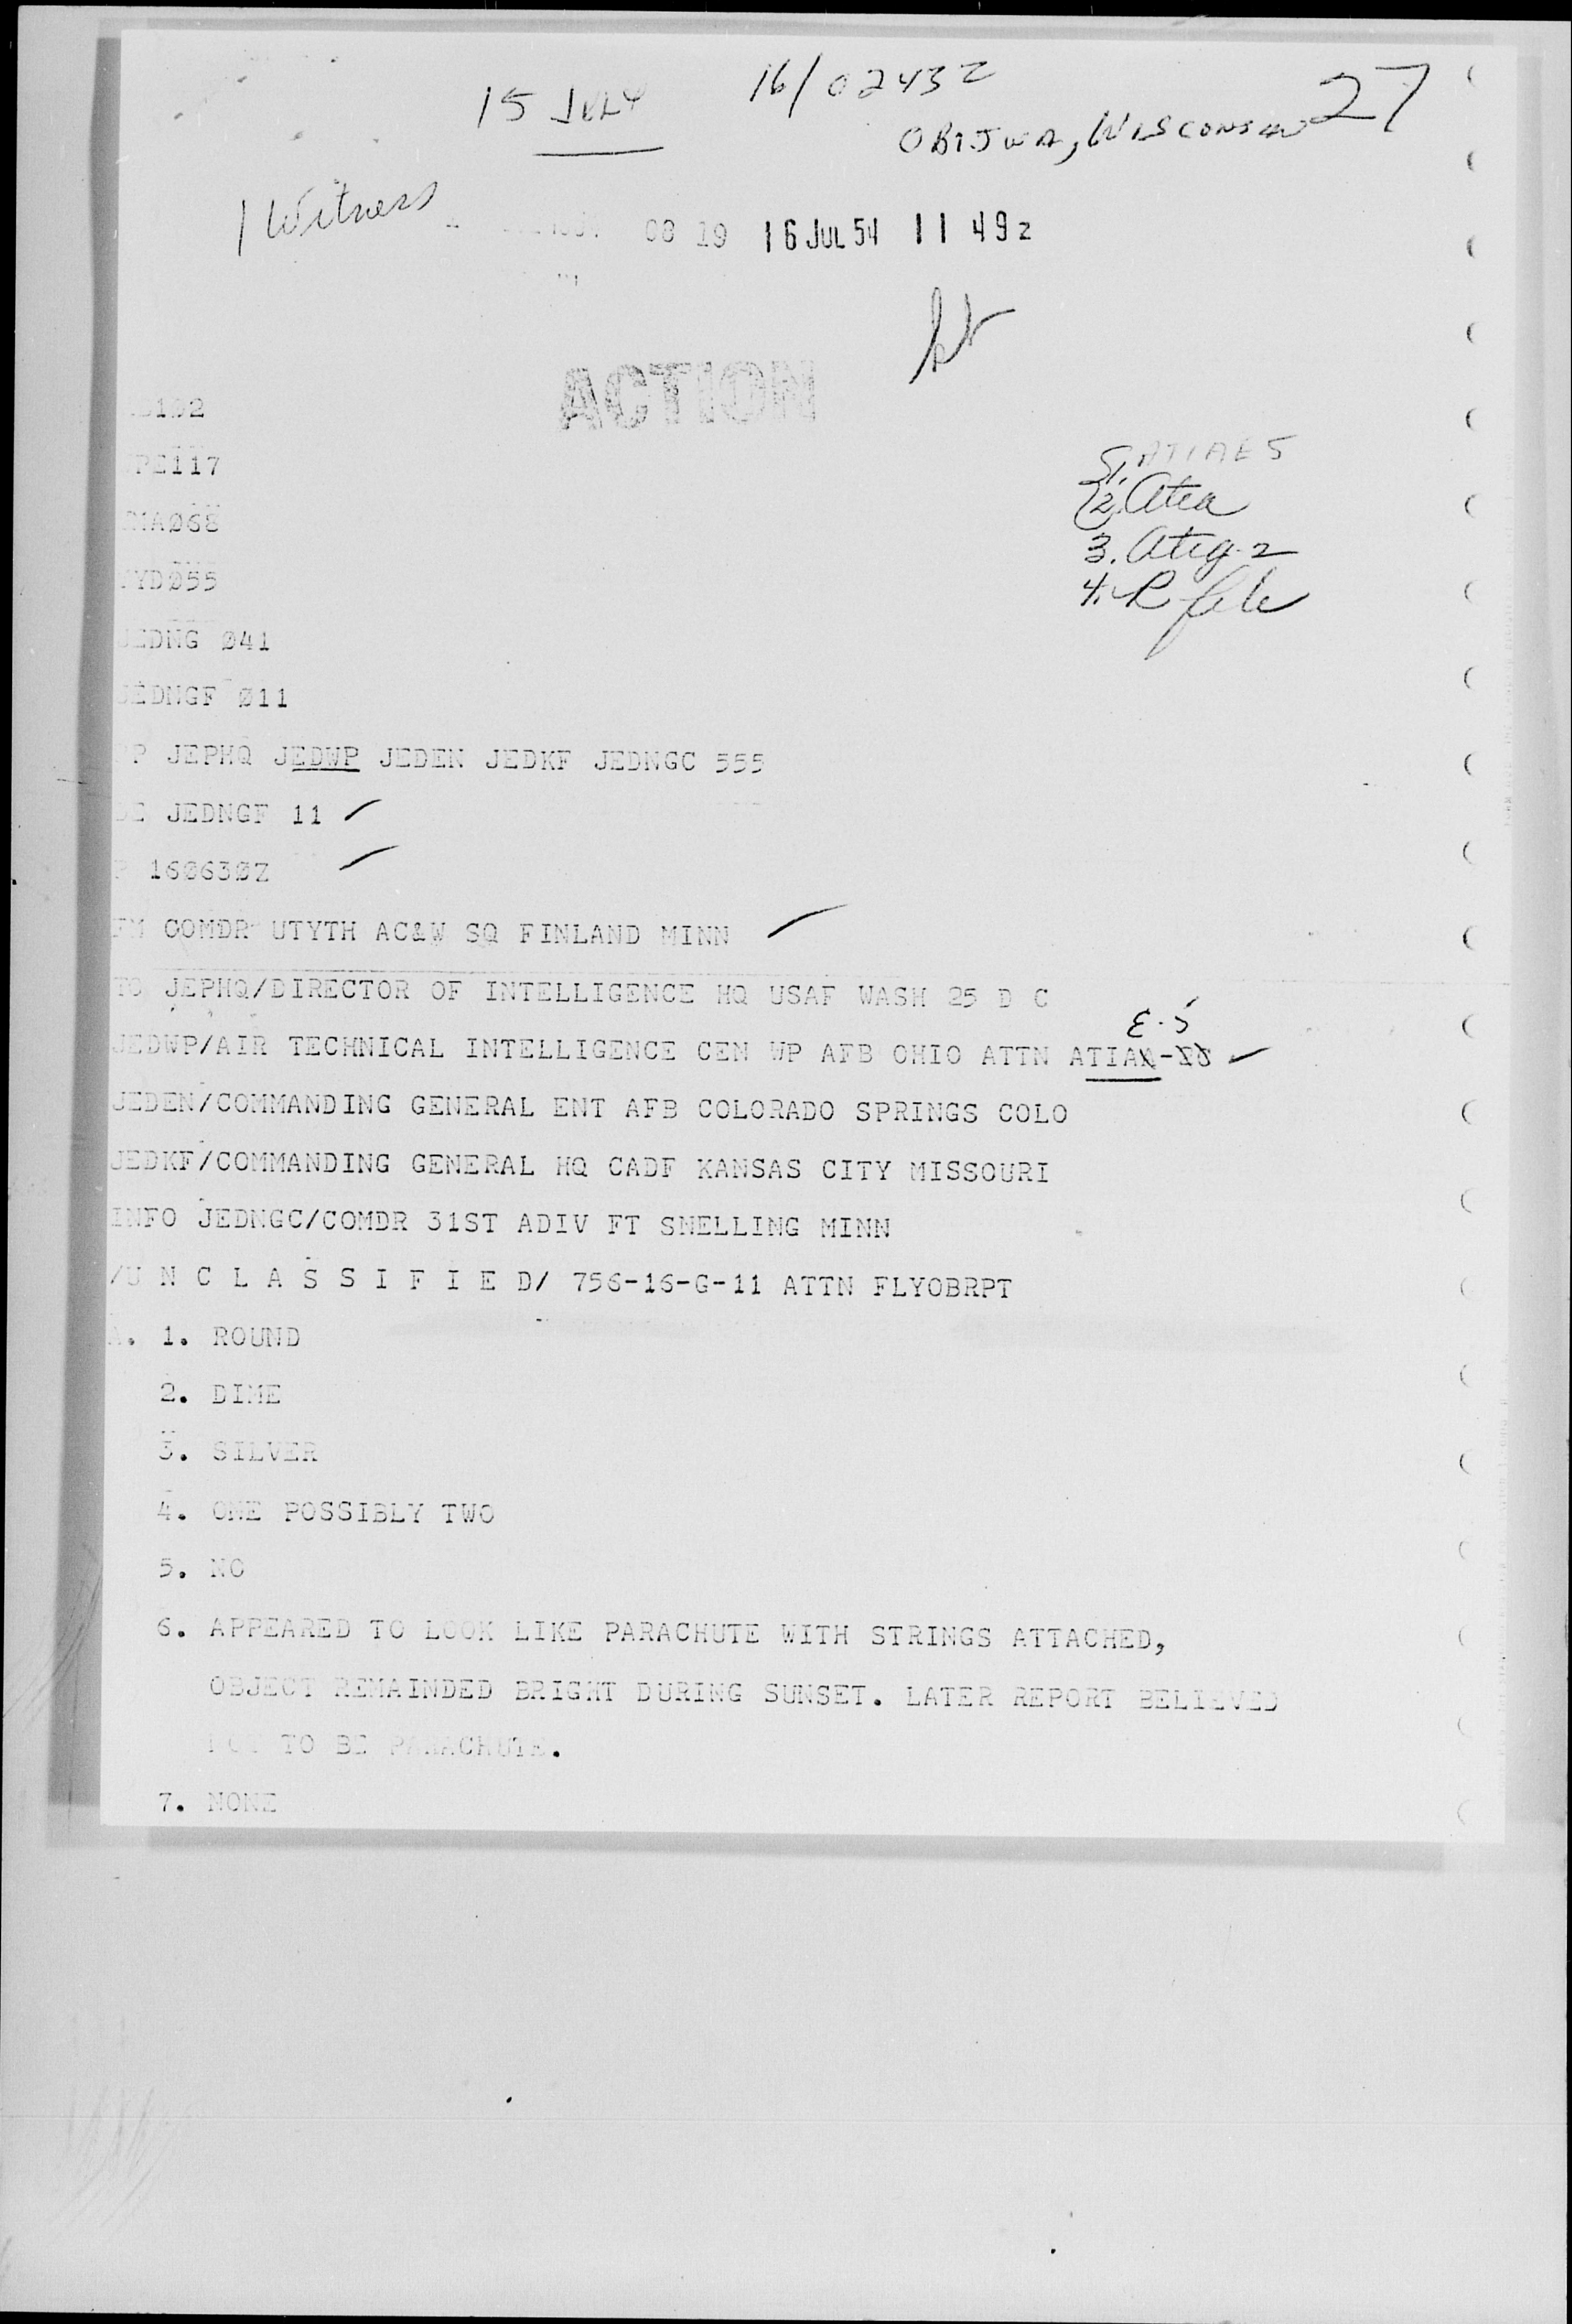 15 JULY 16/0243Z 27
OBIJWA, WISCONSIN
1 Witness
08 19 16 JUL 54 11 49 z
ACTION
117
MA068
YD055
JEDNG Ø41
JEDNGF Ø11
P JEPHQ JEDWP JEDEN JEDKF JEDNGC 555
DE JEDNGF 11
P 160630Z
FM COMDR UTYTH AC&W SQ FINLAND MINN
TO JEPHQ/DIRECTOR OF INTELLIGENCE HQ USAF WASH 25 D C
E-5
JEDWP/AIR TECHNICAL INTELLIGENCE CEN WP AFB OHIO ATTN ATIAA-
JEDEN/COMMANDING GENERAL ENT AFB COLORADO SPRINGS COLO
JEDKF/COMMANDING GENERAL HQ CADF KANSAS CITY MISSOURI
INFO JEDNGC/COMDR 31ST ADIV FT SNELLING MINN
/U N C L A S S I F I E D/ 756-16-G-11 ATTN FLYOBRPT
A. 1. ROUND
2. DIME
3. SILVER
4. ONE POSSIBLY TWO
5. NO
6. APPEARED TO LOOK LIKE PARACHUTE WITH STRINGS ATTACHED,
OBJECT REMAINDED BRIGHT DURING SUNSET. LATER REPORT BELIEVED
NOT TO BE PARACHUTE.
7. NONE
1. ATIAE 5
2. Atea
3. Atig-2
4. R file